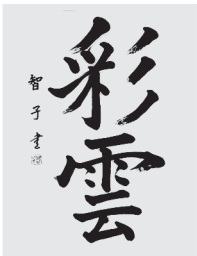 彩雲
智子書